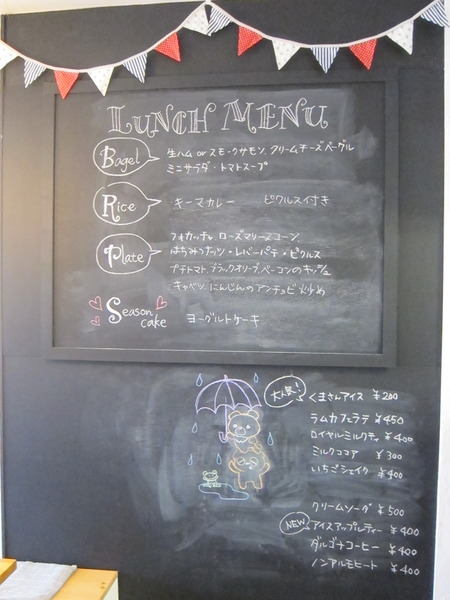 LUNCH MENU
Bagel 生ハム or スモークサーモン, クリームチーズベーグル
ミニサラダ・トマトスープ
Rice キーマカレー ピクルス付き
Plate フォカッチャ, ローズマリースコーン
はちみつナッツ・レバーパテ・ピクルス
プチトマト, ブラックオリーブ, ベーコンのキッシュ
キャベツ, にんじんのアンチョビ炒め
Season cake ヨーグルトケーキ
大人気! くまさんアイス ¥200
ラムカフェラテ ¥450
ロイヤルミルクティ ¥400
ミルクココア ¥300
いちごシェイク ¥400
クリームソーダ ¥500
NEW アイスアップルティー ¥400
ダルゴナコーヒー ¥400
ノンアルモヒート ¥400